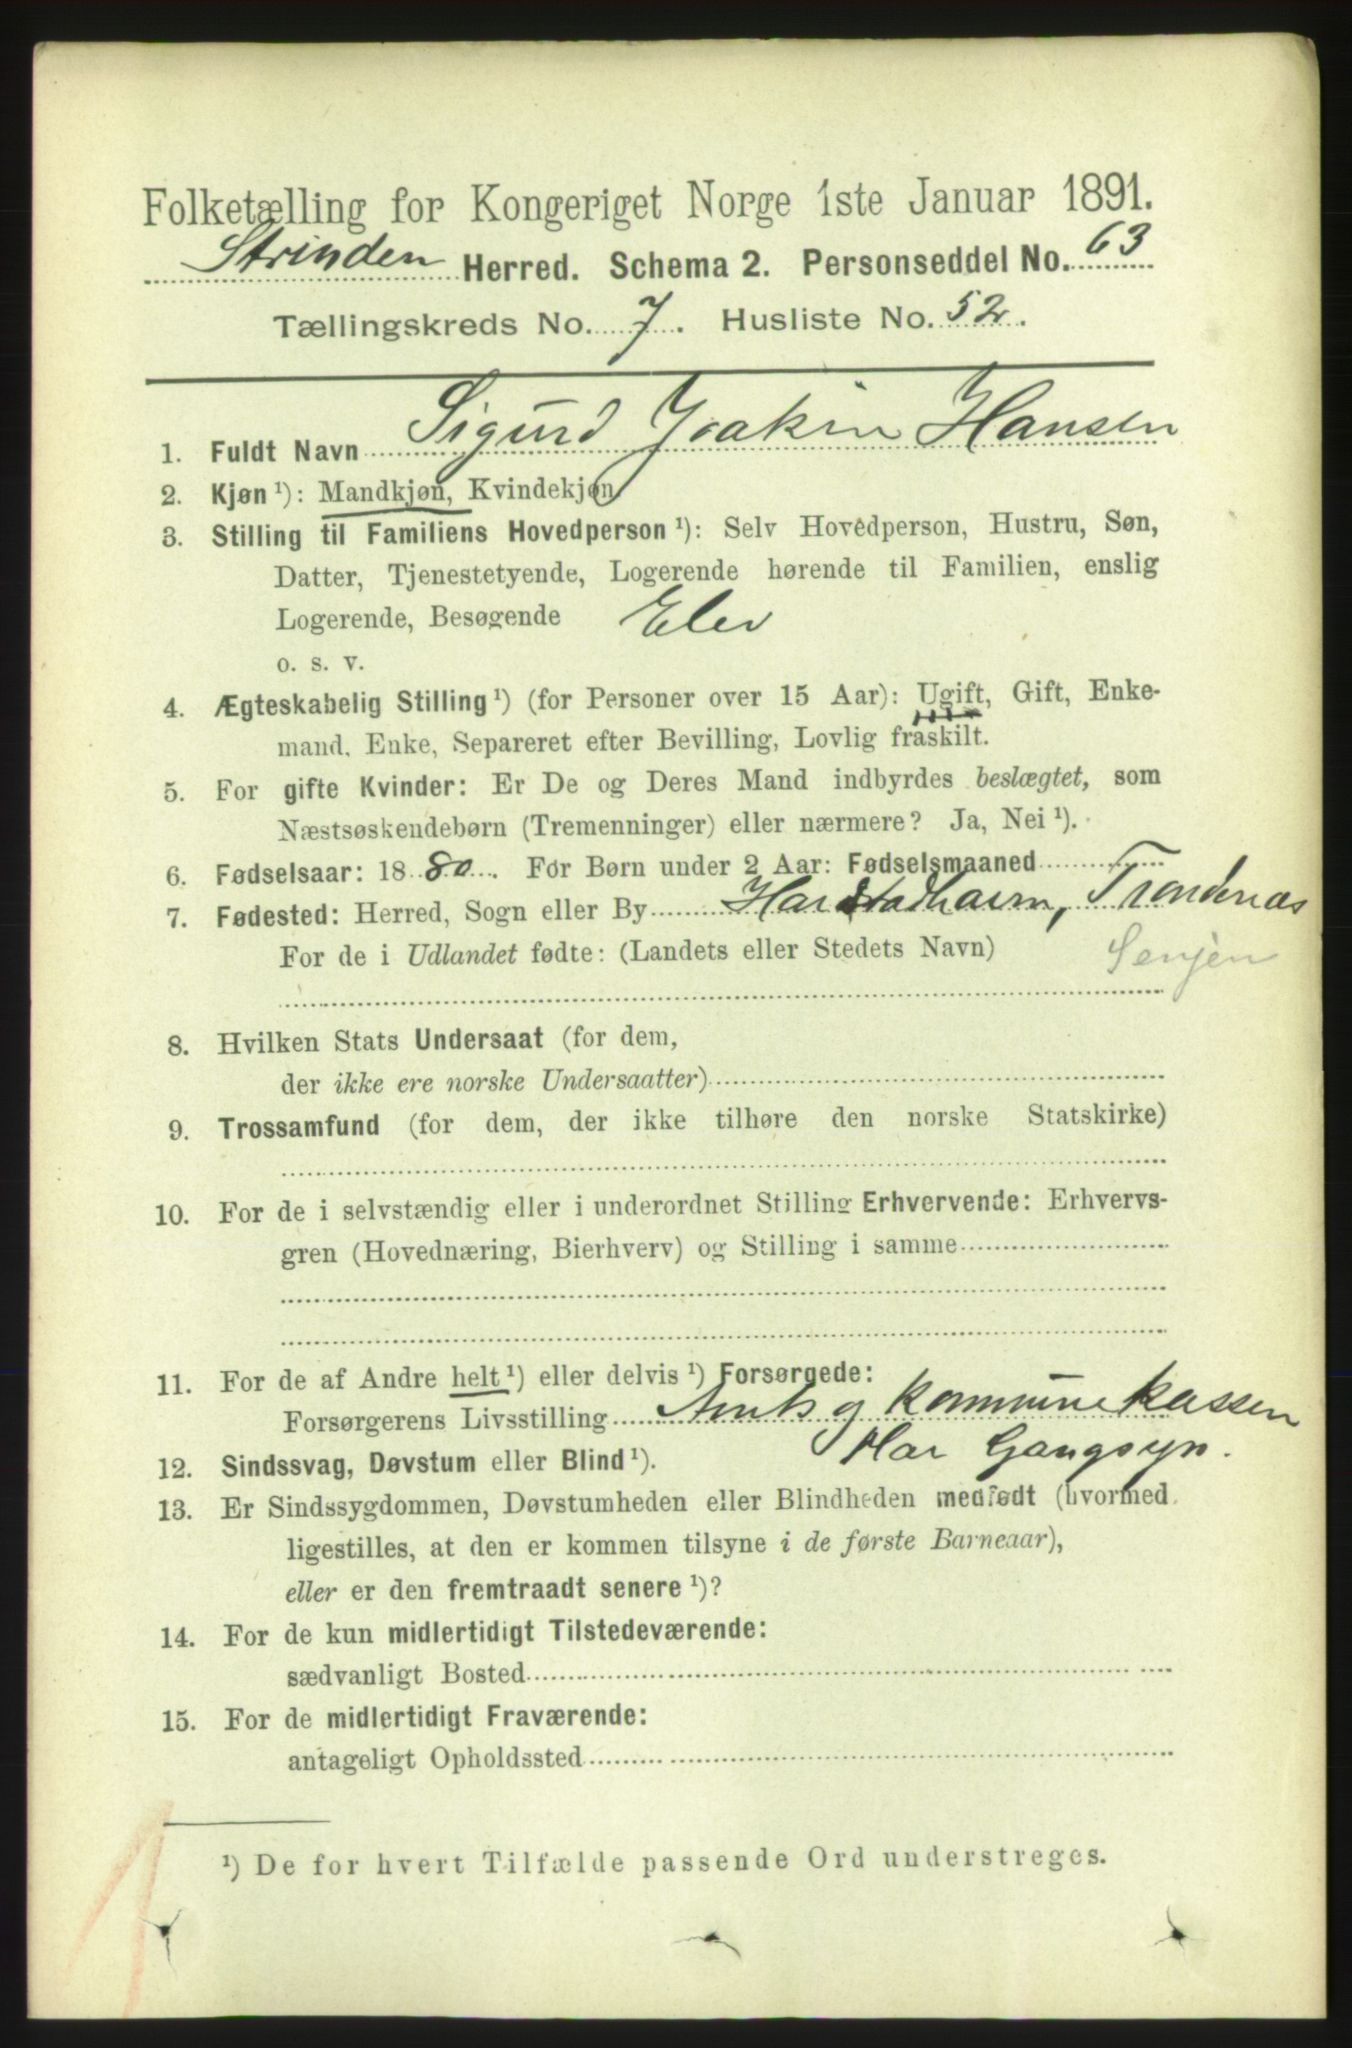 Folketælling for Kongeriget Norge 1ste Januar 1891.
Strinden Herred. Schema 2. Personseddel No. 63
Tællingskreds No. 7. Husliste No. 52.
1. Fuldt Navn Sigurd Joakim Hansen
2. Kjøn ¹): Mandkjøn, Kvindekjøn
3. Stilling til Familiens Hovedperson ¹): Selv Hovedperson, Hustru, Søn,
Datter, Tjenestetyende, Logerende hørende til Familien, enslig
Logerende, Besøgende Elev
o. s. v.
4. Ægteskabelig Stilling ¹) (for Personer over 15 Aar): Ugift, Gift, Enke-
mand, Enke, Separeret efter Bevilling, Lovlig fraskilt.
5. For gifte Kvinder: Er De og Deres Mand indbyrdes beslægtet, som
Næstsøskendebørn (Tremenninger) eller nærmere? Ja, Nei ¹).
6. Fødselsaar: 1880. For Børn under 2 Aar: Fødselsmaaned
7. Fødested: Herred, Sogn eller By Harstadhavn, Trondenæs
For de i Udlandet fødte: (Landets eller Stedets Navn) Senjen
8. Hvilken Stats Undersaat (for dem,
der ikke ere norske Undersaatter)
9. Trossamfund (for dem, der ikke tilhøre den norske Statskirke)
10. For de i selvstændig eller i underordnet Stilling Erhvervende: Erhvervs-
gren (Hovednæring, Bierhverv) og Stilling i samme
11. For de af Andre helt ¹) eller delvis ¹) Forsørgede:
Forsørgerens Livsstilling Amts og Kommunekassen
12. Sindssvag, Døvstum eller Blind ¹). Har Gangsyn.
13. Er Sindssygdommen, Døvstumheden eller Blindheden medfødt (hvormed
ligestilles, at den er kommen tilsyne i de første Barneaar),
eller er den fremtraadt senere ¹)?
14. For de kun midlertidigt Tilstedeværende:
sædvanligt Bosted
15. For de midlertidigt Fraværende:
antageligt Opholdssted
¹) De for hvert Tilfælde passende Ord understreges.
1